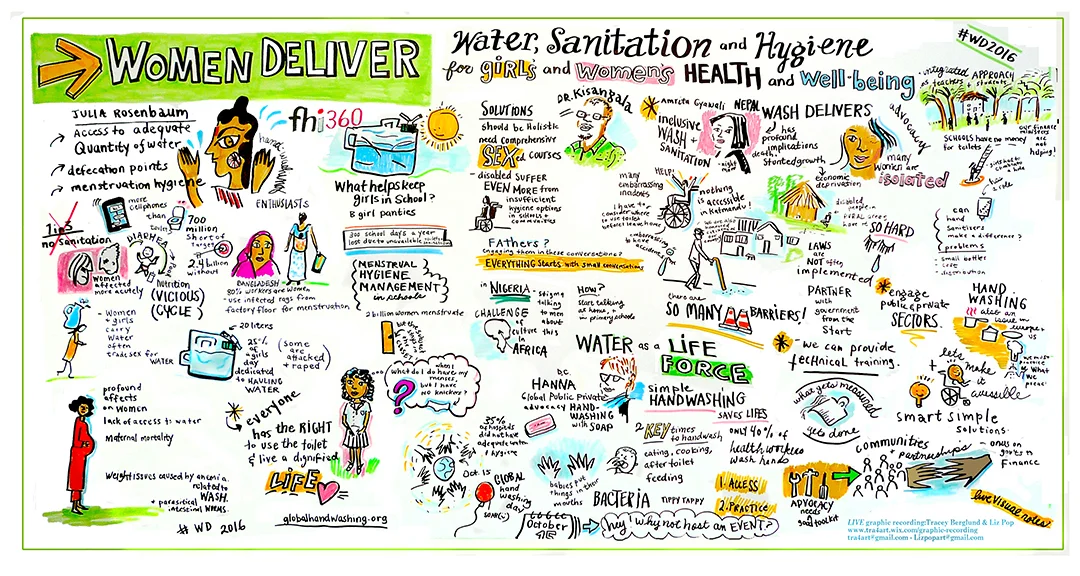 WOMEN DELIVER
Water, Sanitation and Hygiene
for girls and women's HEALTH and well-being
#WD2016
JULIA Rosenbaum
Access to adequate
Quantity of water
defecation points
menstruation hygiene
handwashing
ENTHUSIASTS
fhi360
What helps keep
girls in School?
B girl panties
300 school days a year
lost due to unavailable
MENSTRUAL
HYGIENE
MANAGEMENT
in schools
2 billion women menstruate
1 in 3
no Sanitation
more
cellphones
than
toilets
700
million
short of
target
2.4 billion
without
Women
affected
more acutely
DIARRHEA
Nutrition
(VICIOUS)
(CYCLE)
BANGLADESH
80% workers are women
use infected rags from
factory floor for menstruation
Women
+ girls
carry
water
often
trade sex for
WATER
20 liters
25%
of a
girl's
day
dedicated
to HAULING
WATER
(some
are
attacked
+ raped)
profound
affects
on Women
lack of access to water
Maternal mortality
Weight issues caused by anemia
related to
WASH
+ parasitical
intestinal worms.
# WD 2016
everyone
has the RIGHT
to use the toilet
& live a dignified
LIFE
globalhandwashing.org
when I
what do I do have my
menses,
but I have
no knickers?
SOLUTIONS
should be Holistic
need comprehensive
SEXed courses
disabled SUFFER
EVEN MORE from
insufficient
hygiene options
in schools +
communities
DR. Kisangala
Fathers?
engaging them in these conversations?
EVERYTHING starts with small conversations
in NIGERIA:
stigma
talking
to men
about
this
CHALLENGE
culture
in
AFRICA
HOW?
start talking
at home, +
in primary schools
Amrita Gyawali NEPAL
inclusive
WASH +
SANITATION
many
embarrassing
incidents
HELP!
I have to
consider where
to use toilet
nothing
is accessible
in Katmandu!
WASH DELIVERS
has
profound
implications
death,
stunted growth
economic
deprivation
advocacy
many
women are
isolated
integrated APPROACH
teachers + students
SCHOOLS have no money
for toilets
our finance
ministers
are
not
helping!
disabled
people in
RURAL areas
have it SO HARD
can
hand
Sanitizers
make a difference?
problems
small bottles
cost
distribution
there are
SO MANY BARRIERS!
LAWS
are
NOT often
implemented
PARTNER
with
government
from the
Start
engage
public & private
SECTORS.
HAND
WASHING
also an
issue in
europe +
US
we must
practice
what
we
preach!
we can provide
technical training.
WATER as a LIFE
FORCE
D.C.
HANNA
Global Public Private
advocacy HAND-
WASHING
with SOAP
simple
HANDWASHING
SAVES LIFES
2 KEY times
to handwash
eating, cooking,
after toilet
feeding
only 40% of
healthworkers
wash hands
35%
of hospitals
did not have
adequate water
+ hygiene
Oct. 15
GLOBAL
hand
washing
day
babies put
things in their
mouths
BACTERIA
TIPPY TAPPY
1. ACCESS
2. PRACTICE
October
hey! Why not host an EVENT?
what gets measured
gets done
let's
make
it
accessible
smart simple
solutions.
communities
partnerships
onus on
goes to
Finance
ADVOCACY
needs
good toolkit
live Visual notes
LIVE graphic recording:Tracey Berglund & Liz Pop
www.tra4art.wix.com/graphic-recording
tra4art@gmail.com - Lizpopart@gmail.com